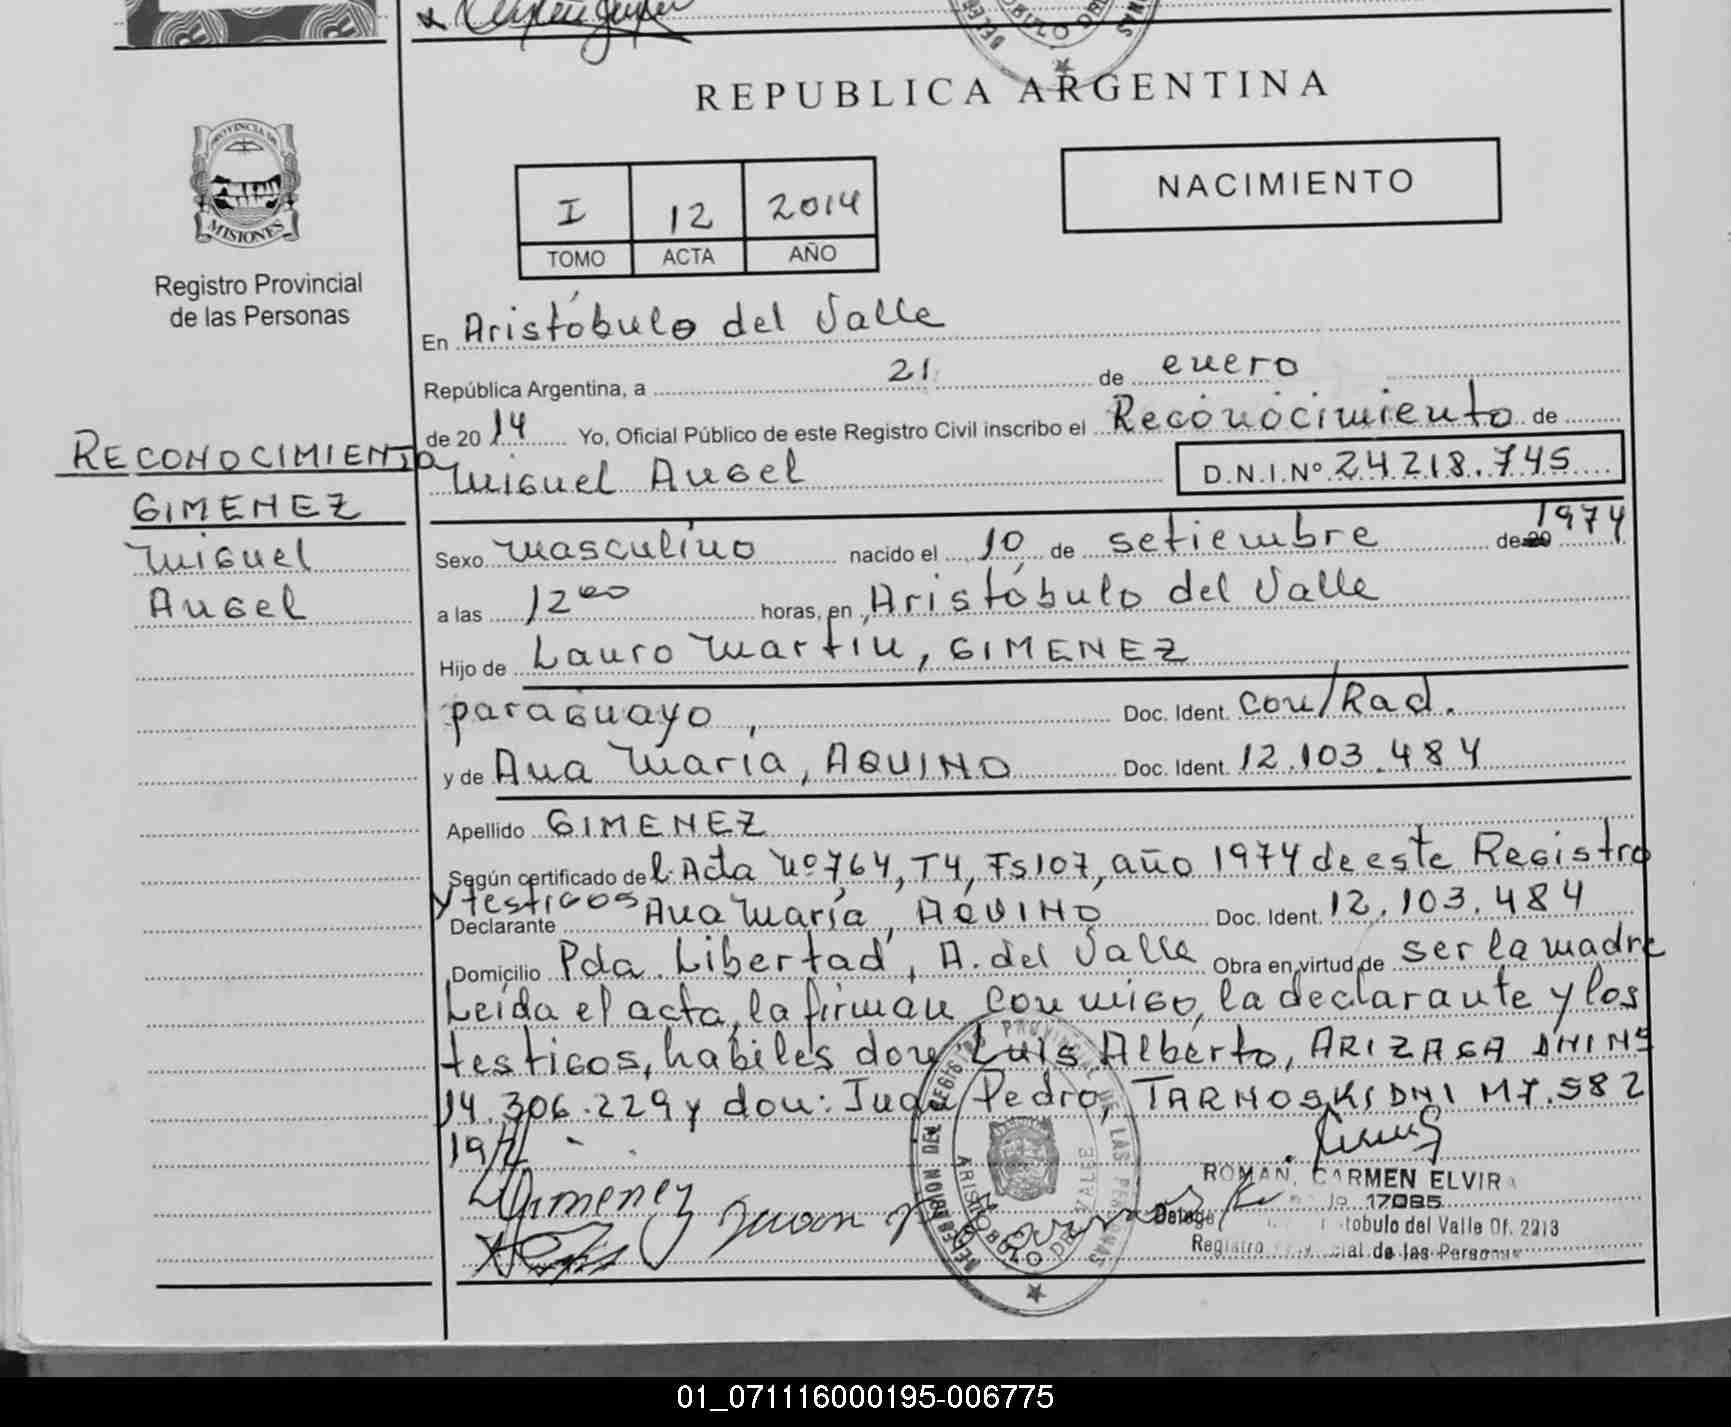 REPUBLICA ARGENTINA
PROVINCIA DE
MISIONES
Registro Provincial
de las Personas
NACIMIENTO
I 12 2014
TOMO ACTA AÑO
En Aristóbulo del Valle
República Argentina, a 21 de enero
de 2014 Yo, Oficial Público de este Registro Civil inscribo el Reconocimiento de
RECONOCIMIENTO
GIMENEZ
Miguel
Angel
Miguel Angel D.N.I. Nº 24218.745
Sexo masculino nacido el 10 de setiembre de 20 1974
a las 12 00 horas, en Aristóbulo del Valle
Hijo de Lauro Martin, GIMENEZ
paraguayo, Doc. Ident. Con/Rad.
y de Ana Maria, AQUINO Doc. Ident. 12.103.484
Apellido GIMENEZ
Según certificado de l. Acta Nº 764, T4, Fs107, año 1974 de este Registro
y testigos
Declarante Ana María, AQUINO Doc. Ident. 12.103.484
Domicilio Pda. Libertad, A. del Valle Obra en virtud de ser la madre
Leída el acta, la firman conmigo, la declarante y los
testigos, hábiles don: Luis Alberto, ARIZAGA DNI Nº
14.306.229 y don: Juan Pedro, TARNOSKI DNI M7.582
ROMAN, CARMEN ELVIRA
17085
tobulo del Valle Of. 2213
Registro de las Personas
DELEGACION DEL REGISTRO PROVINCIAL DE LAS PERSONAS
ARISTOBULO DEL VALLE
01_071116000195-006775